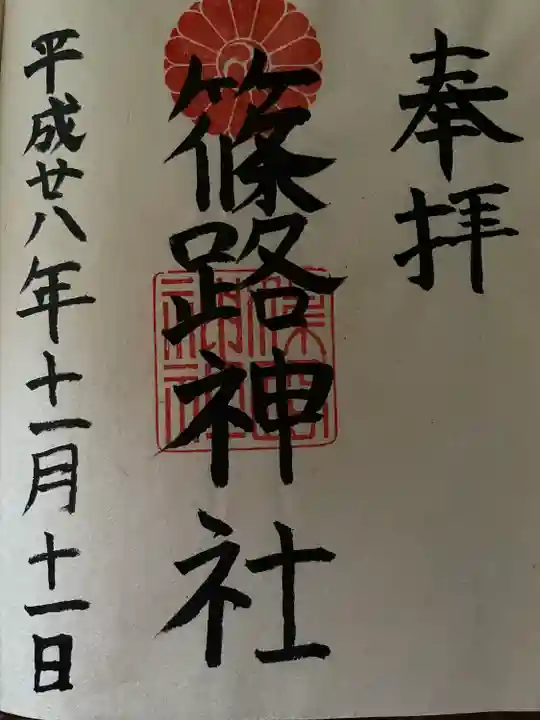 奉拝
篠路神社
平成廿八年十一月十一日